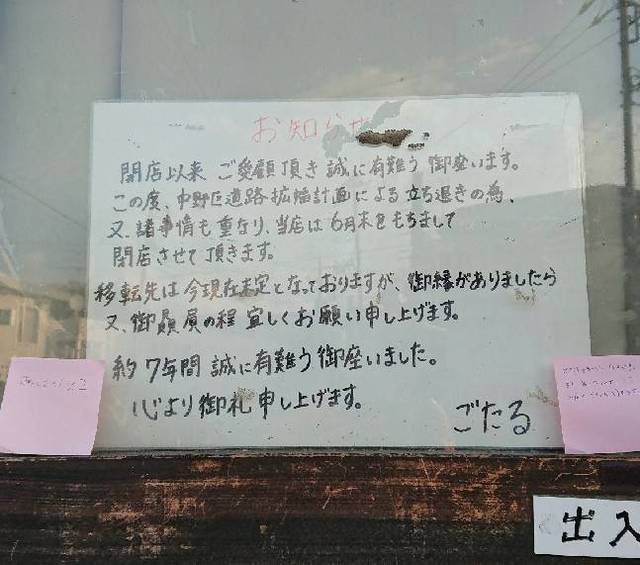 お知らせ
閉店以来 ご愛顧頂き 誠に有難う 御座います。
この度、中野区道路拡幅計画による立ち退きの為、
又、諸事情も重なり、当店は6月末をもちまして
閉店させて頂きます。
移転先は今現在未定となっておりますが、御縁がありましたら
又、御贔屓の程 宜しくお願い申し上げます。
約7年間 誠に有難う御座いました。
心より御礼申し上げます。
ごたる
出入